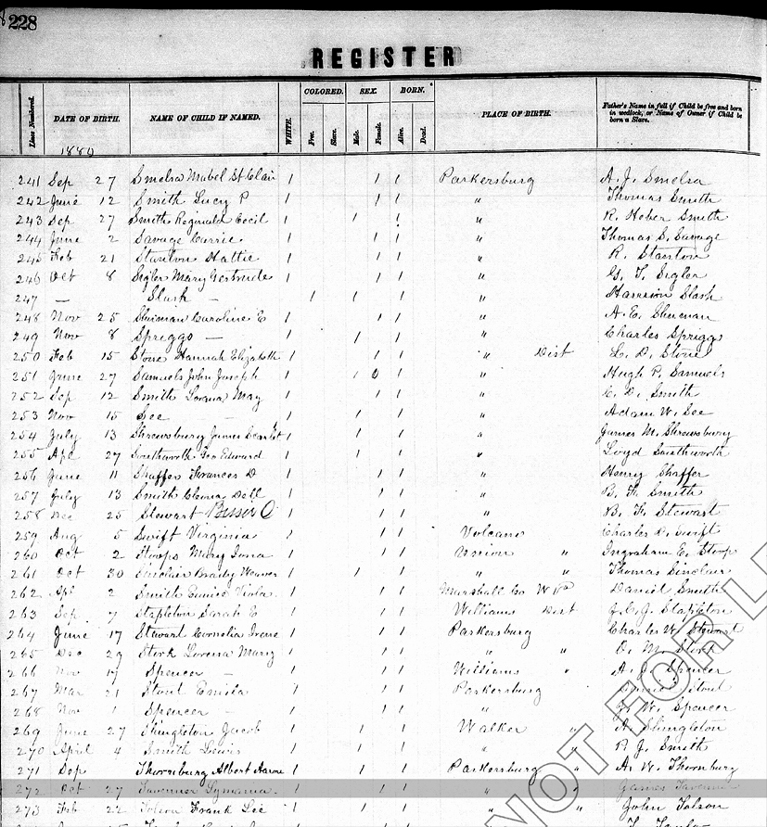 228
REGISTER
Lines Numbered. DATE OF BIRTH. NAME OF CHILD IF NAMED. WHITE. COLORED. Free. Slave. SEX. Male. Female. BORN. Alive. Dead. PLACE OF BIRTH. Father's Name in full if Child be free and born in wedlock, or Name of Owner if Child be born a Slave.
1880
241 Sep 27 Smelsa Mabel St Clair 1 1 1 Parkersburg A. J. Smelsa
242 June 12 Smith Lucy P 1 1 1 " Thomas Smith
243 Sep 27 Smith Reginald Cecil 1 1 1 " R. Heber Smith
244 June 2 Savage Carrie 1 1 1 " Thomas S. Savage
245 Feb 21 Stanton Hattie 1 1 1 " R. Stanton
246 Oct 8 Sigler Mary Gertrude 1 1 1 " G. T. Sigler
247 — Slash — 1 1 1 " Harrison Slash
248 Nov 25 Caroline E 1 1 1 " A. E.
249 Nov 8 Spriggs — 1 1 1 " Charles Sprigg
250 Feb 15 Stone Hannah Elizabeth 1 1 1 " Dist L. D. Stone
251 June 27 Samuels John Joseph 1 1 0 1 " Hugh P. Samuels
252 Sep 12 Smith May 1 1 1 " Smith
253 Nov 15 See — 1 1 1 " Adam W. See
254 July 13 Shrewsbury James 1 1 1 " James M. Shrewsbury
255 Apl 27 Smithworth Geo Edward 1 1 1 " Loyd Smithworth
256 June 11 Shaffer Frances D 1 1 1 " Henry Shaffer
257 July 13 Smith Dell 1 1 1 " B. F. Smith
258 Dec 25 Stewart 1 1 1 " B. F. Stewart
259 Aug 5 Swift Virginia 1 1 1 Volcano Charles Swift
260 Oct 2 Stoops Mary 1 1 1 Union " Ingraham E. Stoop
261 Oct 30 Sinclair Brady 1 1 1 " " Thomas Sinclair
262 Apl 2 Smith 1 1 1 Marshall Co W Va Daniel Smith
263 Sep 7 Stapleton Sarah E 1 1 1 Williams Dist J. C. J. Stapleton
264 June 17 Steward Cornelia Irene 1 1 1 Parkersburg Charles W. Stewart
265 Dec 29 Stork Lorena Mary 1 1 1 " " D. M. Stork
266 Nov 17 Spencer — 1 1 1 Williams " A. J. Spencer
267 Mar 21 Stout 1 1 1 Parkersburg Stout
268 Nov 1 Spencer — 1 1 1 " W. Spencer
269 June 27 Shingleton Jacob 1 1 1 Walker " A. Shingleton
270 April 4 Smith Lewis 1 1 1 " " P. J. Smith
271 Sep Thornburg Albert Aaron 1 1 1 Parkersburg " A. W. Thornburg
272 Oct 27 Tavenner 1 1 1 " " James Tavenner
273 Feb 22 Tolson Frank Lee 1 1 1 " " John Tolson
NOT FOR